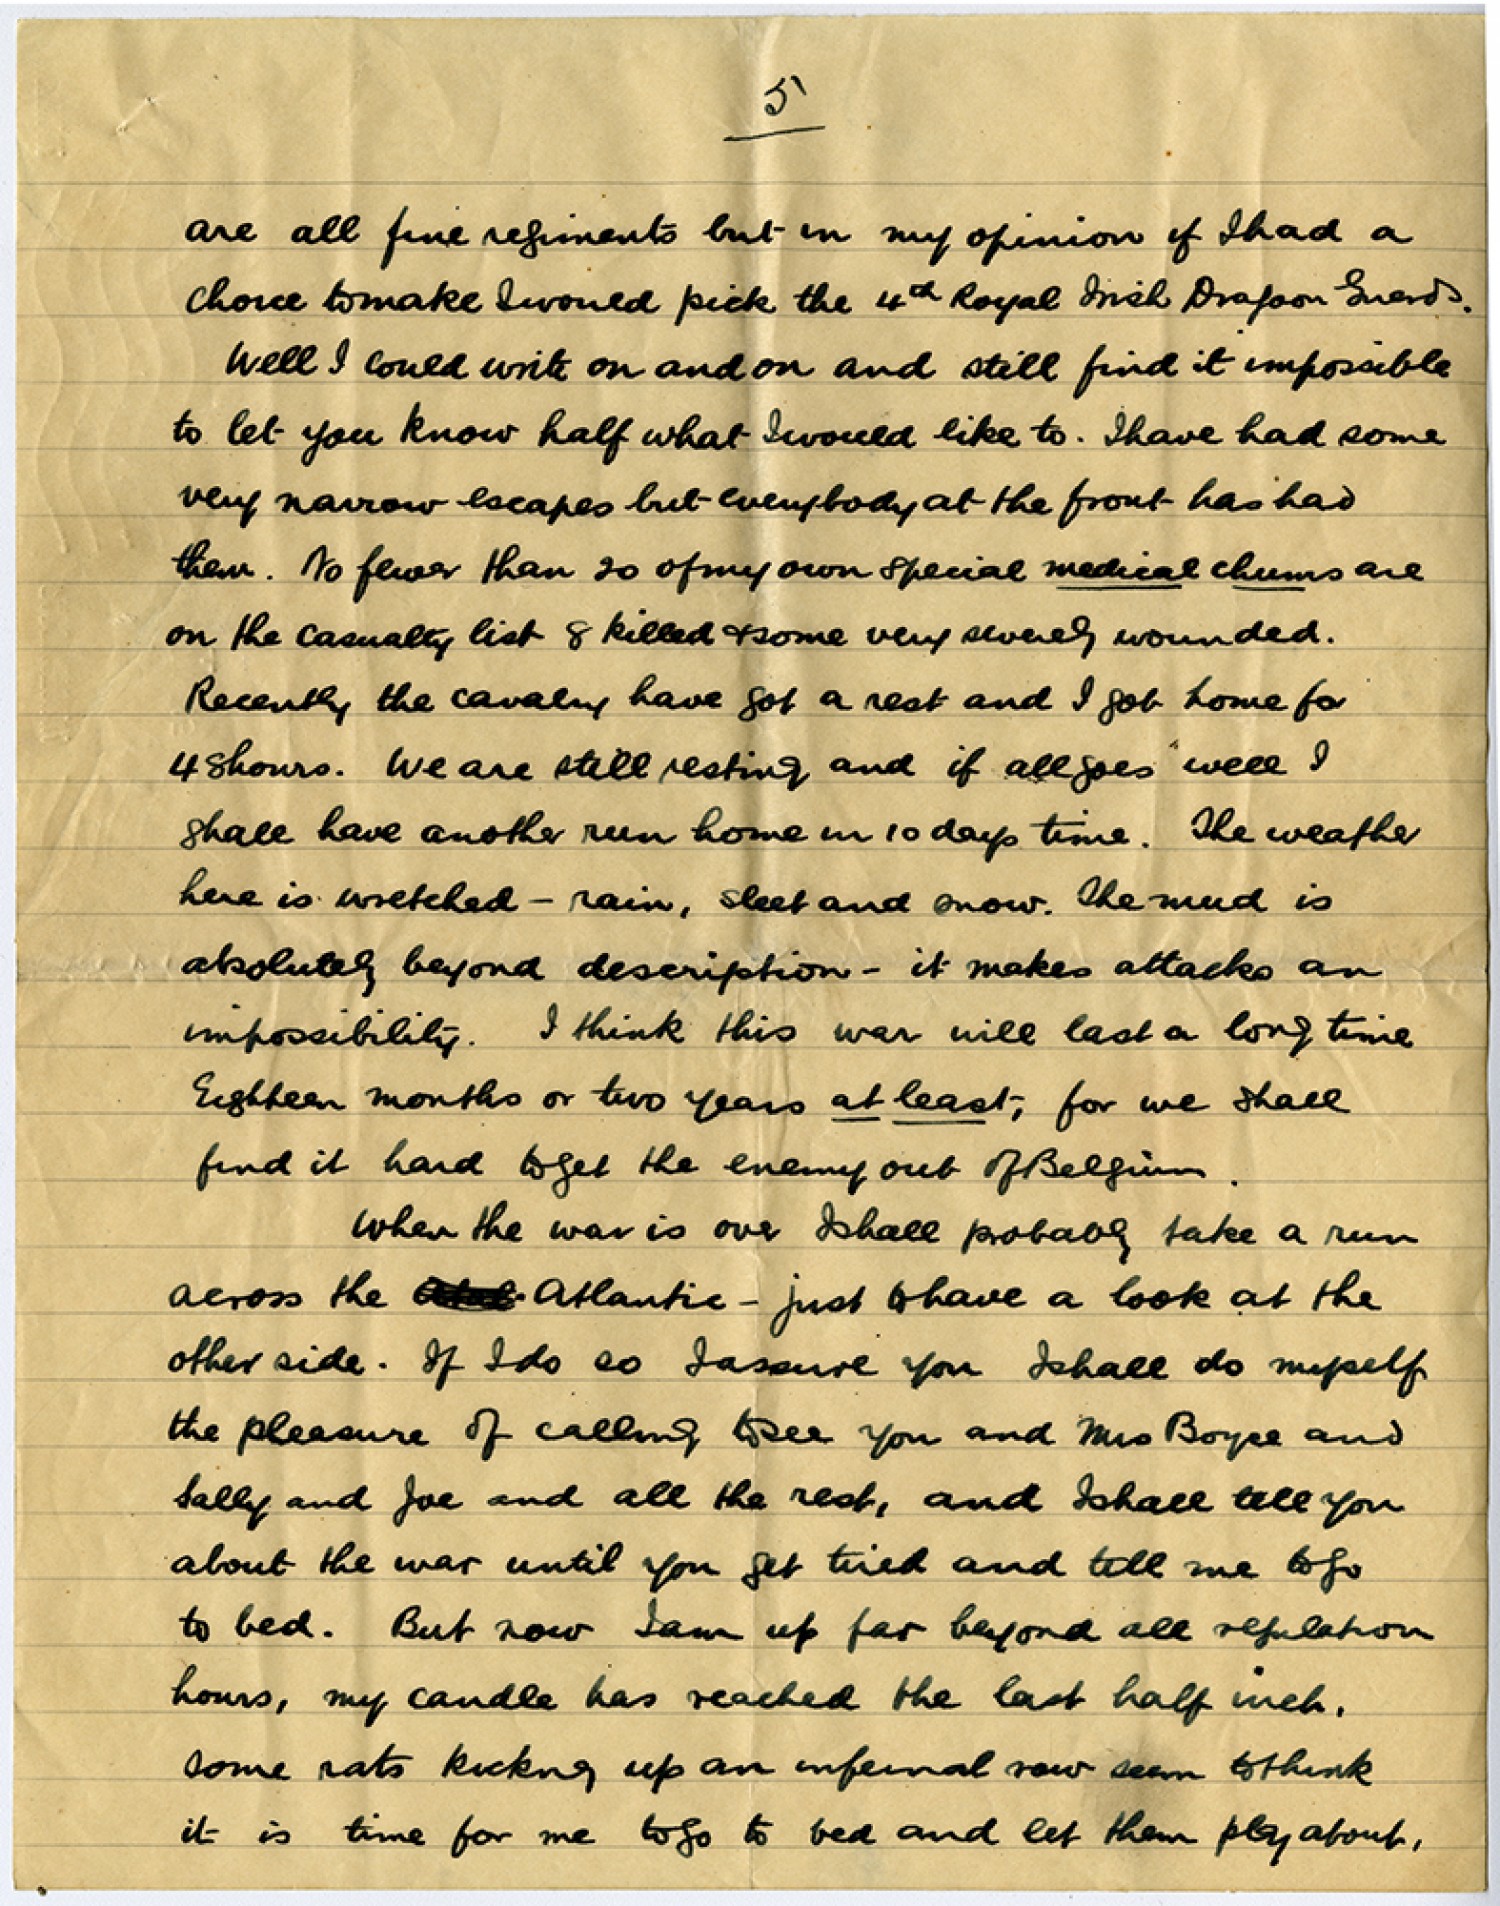 5
are all fine regiments but in my opinion if I had a
choice to make I would pick the 4th Royal Irish Dragoon Guards.
Well I could write on and on and still find it impossible
to let you know half what I would like to. I have had some
very narrow escapes but everybody at the front has had
them. No fewer than 20 of my own special medical chums are
on the casualty list 8 killed & some very severely wounded.
Recently the cavalry have got a rest and I got home for
48 hours. We are still resting and if all goes well I
shall have another run home in 10 days time. The weather
here is wretched – rain, sleet and snow. The mud is
absolutely beyond description – it makes attacks an
impossibility. I think this war will last a long time
Eighteen months or two years at least, for we shall
find it hard to get the enemy out of Belgium.
When the war is over I shall probably take a run
across the Atlantic – just to have a look at the
other side. If I do so I assure you I shall do myself
the pleasure of calling to see you and Mrs Boyce and
Sally and Joe and all the rest, and I shall tell you
about the war until you get tired and tell me to go
to bed. But now I am up far beyond all regulation
hours, my candle has reached the last half inch,
some rats kicking up an infernal row seem to think
it is time for me to go to bed and let them play about,